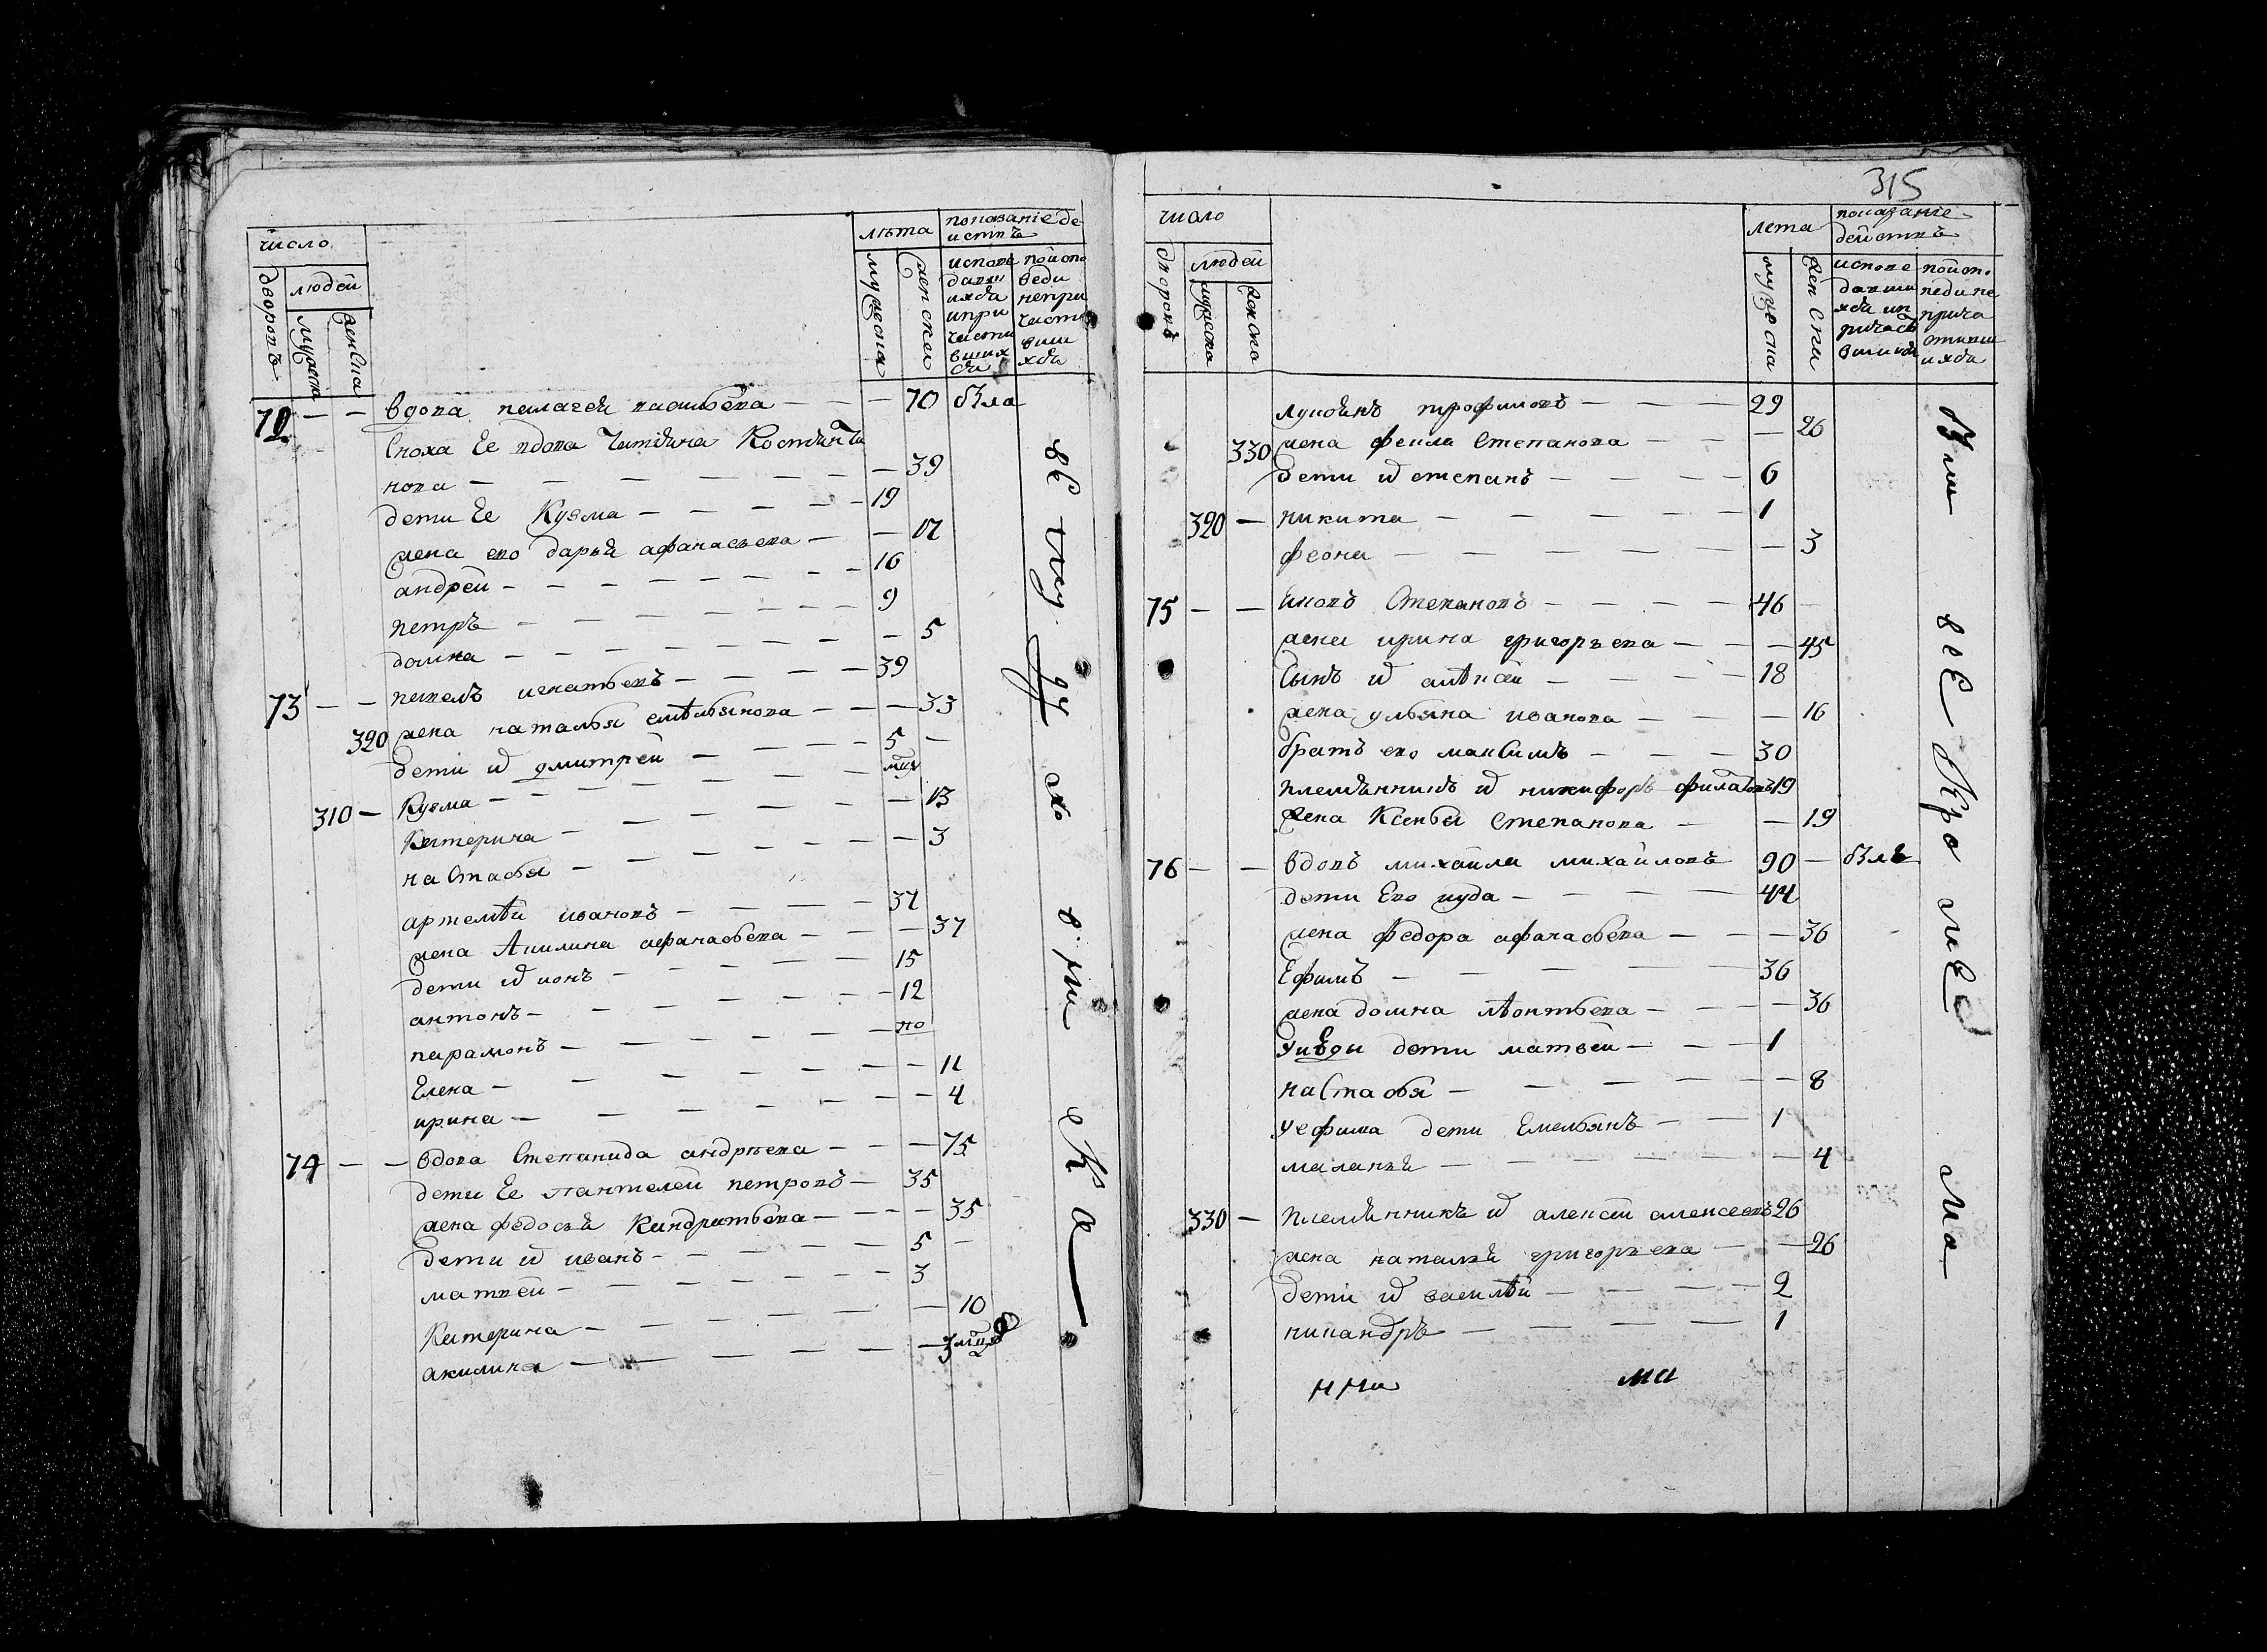 число
лѣта
показаніе де
иствъ
дворовъ
людей
мужеска
женска
мужеска
женски
испове
давши
ихся
ипри
части
вших
ся
поиспо
веди
непри
части
вши
хся
72 — — вдова пелагея васильева — — — 70 была
Сноха Ее вдова Костянти
нова — — — — — — 39
дети Ее Кузма — — — — 19
жена ево дарья афанасьева — — 17
андрей — — — — — — 16
петръ — — — — — — 9
домна — — — — — — 5
73 — — павелъ игнатьевъ — — — — 39
320 жена наталья емѣльянова — — — 33
дети и дмитрей — — — — 5 —
310 — Кузма — — — — — мцъ
Катерина — — — — — 13
настасья — — — — — 3
артемѣй ивановъ — — — — 37
жена Акилина афанасьева — — — 37
дети и ионъ — — — — — 15
антонъ — — — — — — 12
парамонъ — — — — — — но
Елена — — — — — — 11
ирина — — — — — — 4
74 — — вдова Степанида андрѣева — — — 75
дети Ее пантелей петровъ — 35
жена федосья Кондратьева — — — 35
дети и иванъ — — — — — 5 —
матвей — — — — — — 3
Катерина — — — — — — 10
акилина — — — — — — 3 мцъ
315
число
лета
показание
действъ
дворовъ
людей
мужеска
женска
мужеска
женски
испове
давши
хся ип
ричаст
вшихся
поиспо
веди не
прича
стивши
ихся
лукоянъ трофимовъ — — — 29
330 жена фекла Степанова — — — 26
дети и степанъ — — — — 6
320 — никита — — — — — 1
феона — — — — — — 3
75 — — Иковъ Степановъ — — — — 46 —
жена ирина григорьева — — — 45
Сынъ и алѣксей — — — — 18
жена ульяна иванова — — — 16
братъ ево максимъ — — — 30
племянникъ и никифоръ филатовъ 19
жена Ксенья степанова — — 19
76 — — вдовъ михаила михайловъ 90 — былъ
дети Ево иуда — — — — 44
жена федора афанасьева — — — 36
Ефимъ — — — — 36
жена домна лѣонтьева — — — 36
Уиуды дети матвей — — — 1
настасья — — — — — — 8
Уефима дети Емельянъ — — 1
маланья — — — — — — 4
330 — племянникъ и алексей алексеевъ 26
жена наталья григорьева — — 26
дети и василѣй — — — — 2
никандръ — — — — — 1